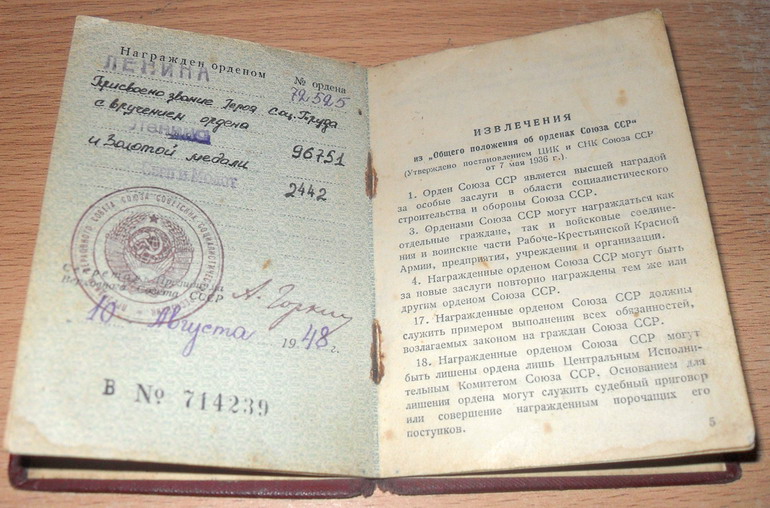 Награжден орденом
ЛЕНИНА
№ ордена
72525
Присвоено звание Героя Соц. Труда
с вручением ордена
Ленина
96751
и Золотой медали
Серп и Молот
2442
Секретарь Президиума
Верховного Совета СССР
А. Горкин
10 Августа 1948 г.
В № 714239
ИЗВЛЕЧЕНИЯ
из „Общего положения об орденах Союза ССР“
(Утверждено постановлением ЦИК и СНК Союза ССР
от 7 мая 1936 г.)
1. Орден Союза ССР является высшей наградой
за особые заслуги в области социалистического
строительства и обороны Союза ССР.
3. Орденами Союза ССР могут награждаться как
отдельные граждане, так и войсковые соедине-
ния и воинские части Рабоче-Крестьянской Красной
Армии, предприятия, учреждения и организации.
4. Награжденные орденом Союза ССР могут быть
за новые заслуги повторно награждены тем же или
другим орденом Союза ССР.
17. Награжденные орденом Союза ССР должны
служить примером выполнения всех обязанностей,
возлагаемых законом на граждан Союза ССР.
18. Награжденные орденом Союза ССР могут
быть лишены ордена лишь Центральным Исполни-
тельным Комитетом Союза ССР. Основанием для
лишения ордена могут служить судебный приговор
или совершение награжденным порочащих его
поступков.
5